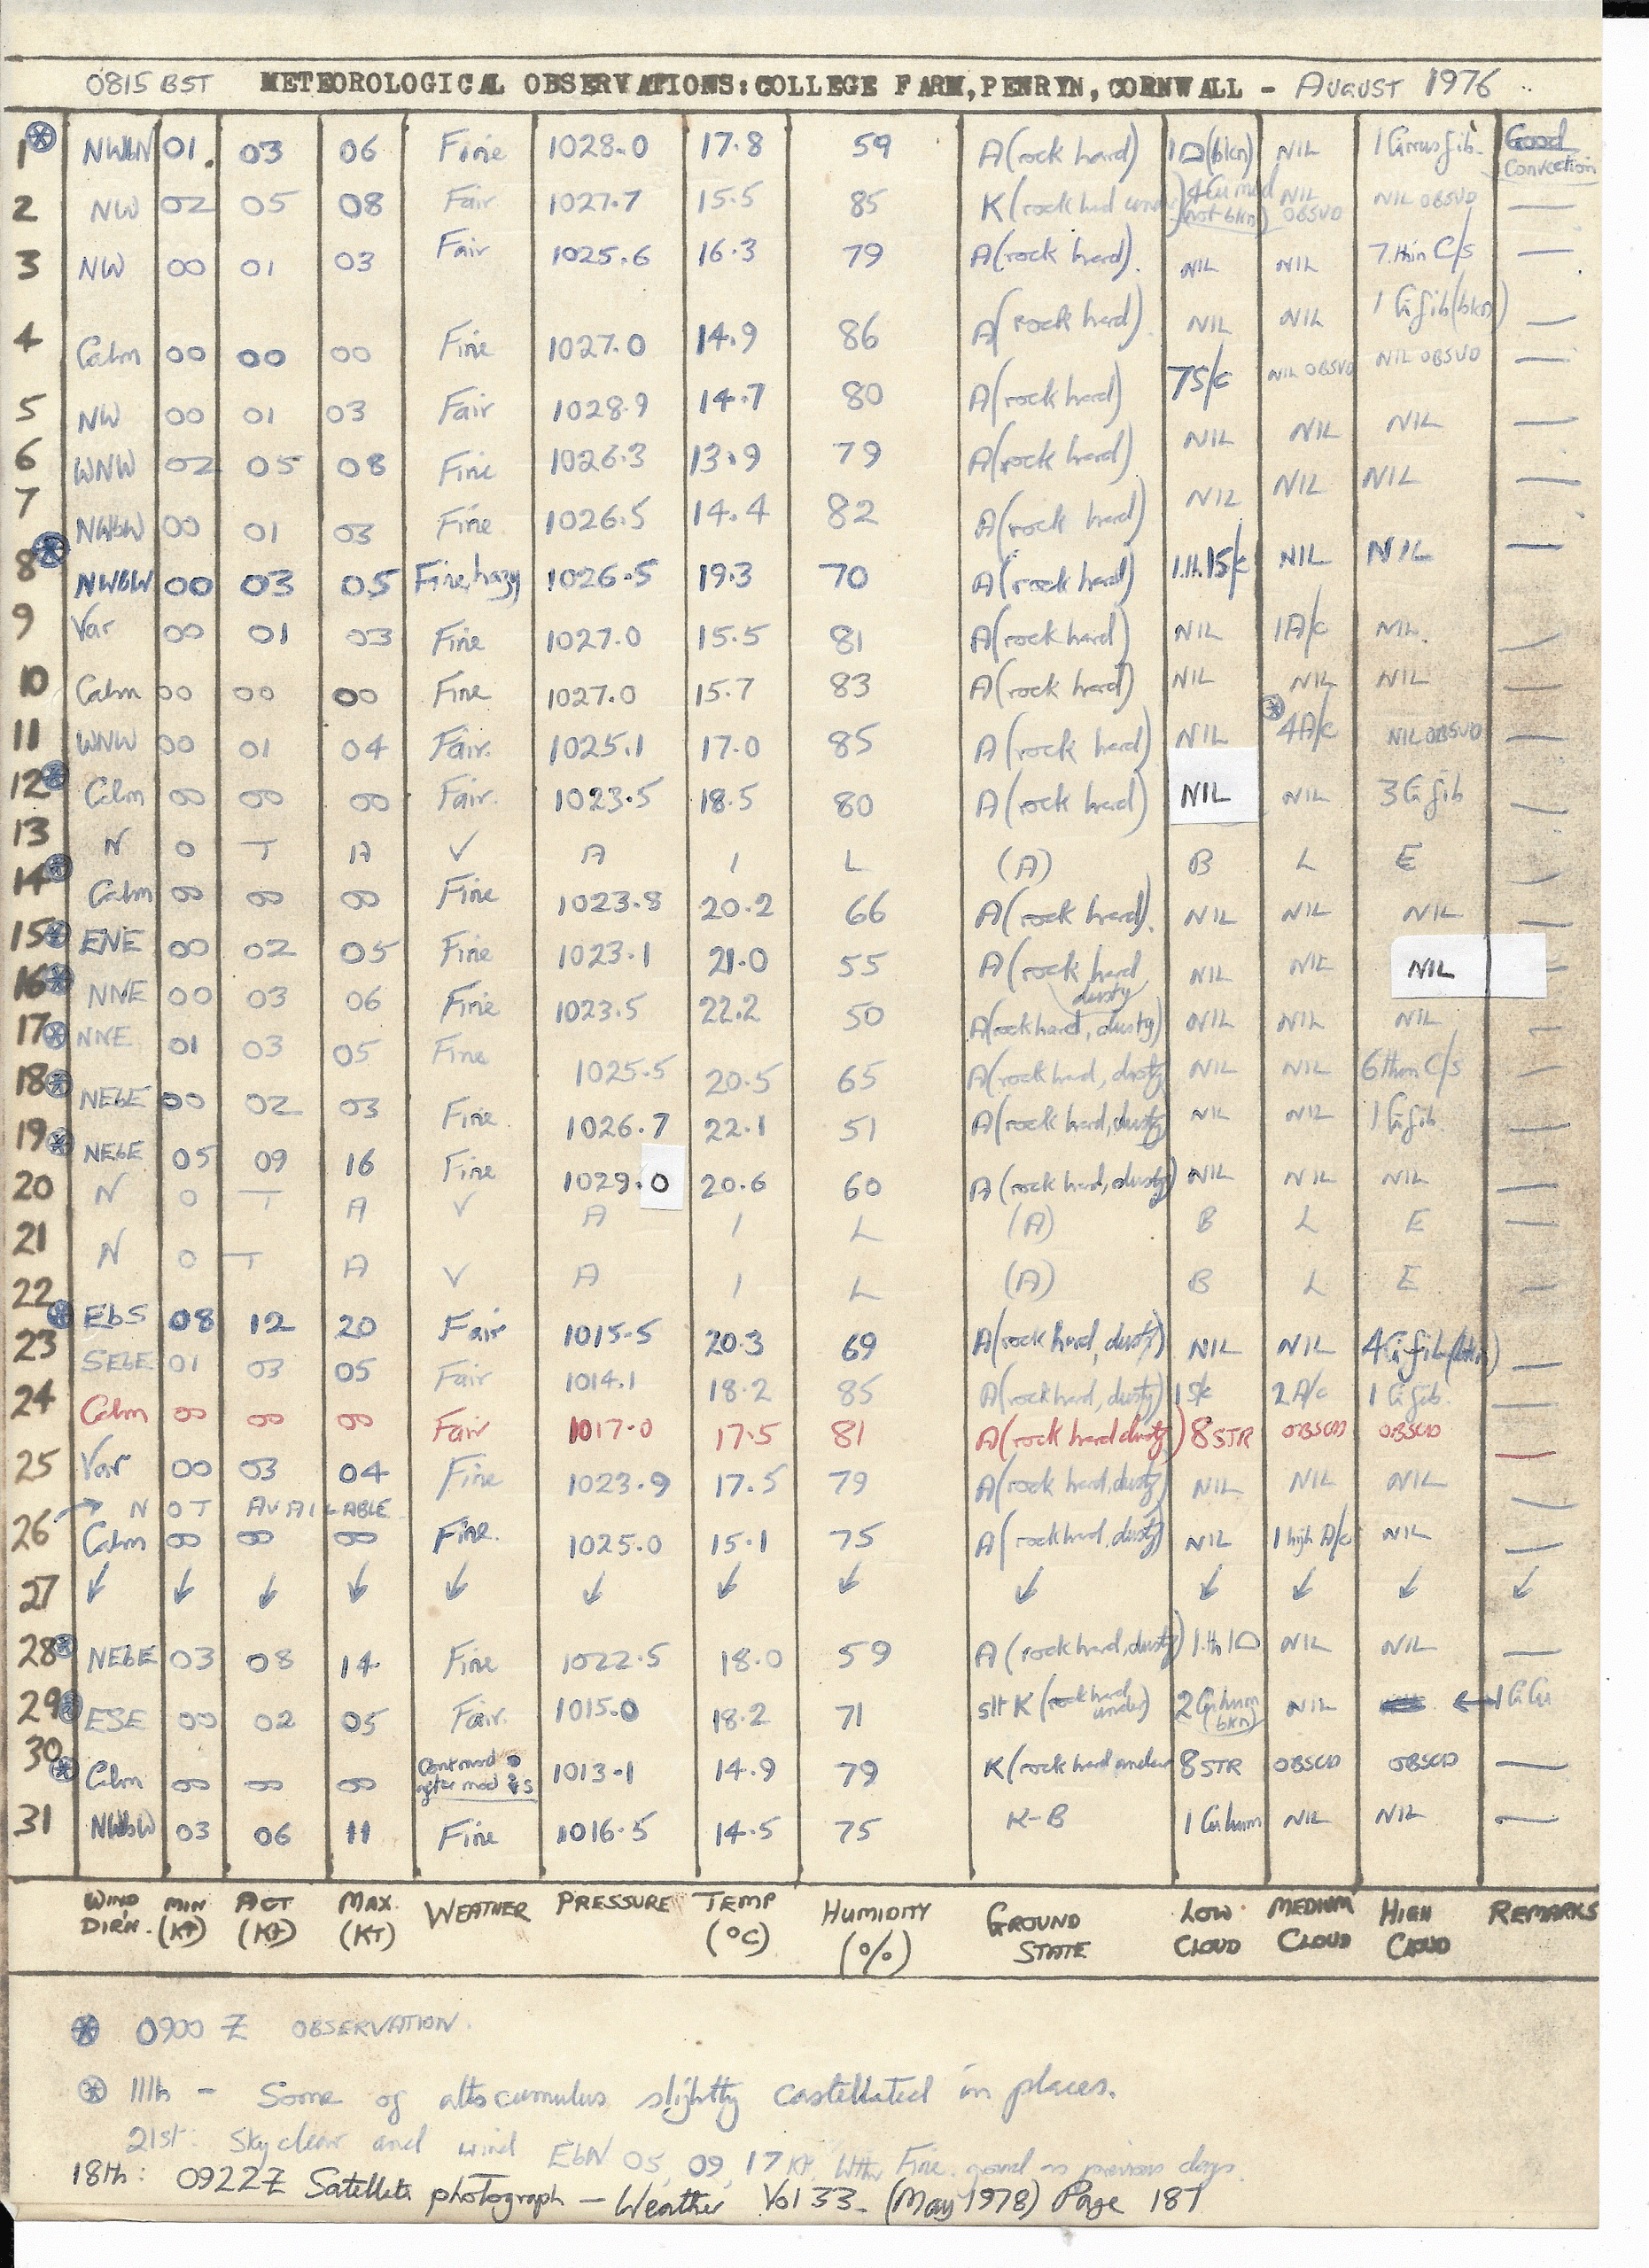 0815 BST METEOROLOGICAL OBSERVATIONS: COLLEGE FARM, PENRYN, CORNWALL - AUGUST 1976
1 NWbN 01 03 06 Fine 1028.0 17.8 59 A (rock hard) 1 (bkn) NIL 1 Cirrus fib. Good Convection
2 NW 02 05 08 Fair 1027.7 15.5 85 K (rock hard under) 4 Cu med (not bkn) NIL OBSVD NIL OBSVD —
3 NW 00 01 03 Fair 1025.6 16.3 79 A (rock hard). NIL NIL 7 thin C/s —
4 Calm 00 00 00 Fine 1027.0 14.9 86 A (rock hard). NIL NIL 1 Ci fib (bkn) —
5 NW 00 01 03 Fair 1028.9 14.7 80 A (rock hard) 7 S/c NIL OBSVD NIL OBSVD —
6 WNW 02 05 08 Fine 1026.3 13.9 79 A (rock hard) NIL NIL NIL —
7 NWbW 00 01 03 Fine 1026.5 14.4 82 A (rock hard) NIL NIL NIL —
8 NWbW 00 03 05 Fine, hazy 1026.5 19.3 70 A (rock hard) 1.th.1S/c NIL NIL —
9 Var 00 01 03 Fine 1027.0 15.5 81 A (rock hard) NIL 1 A/c NIL. —
10 Calm 00 00 00 Fine 1027.0 15.7 83 A (rock hard) NIL NIL NIL —
11 WNW 00 01 04 Fair. 1025.1 17.0 85 A (rock hard) NIL 4 A/c NIL OBSVD —
12 Calm 00 00 00 Fair. 1023.5 18.5 80 A (rock hard) NIL NIL 3 Ci fib —
13 N O T A V A I L (A) B L E —
14 Calm 00 00 00 Fine 1023.8 20.2 66 A (rock hard). NIL NIL NIL —
15 ENE 00 02 05 Fine 1023.1 21.0 55 A (rock hard dusty NIL NIL NIL —
16 NNE 00 03 06 Fine 1023.5 22.2 50 A (rock hard, dusty) NIL NIL NIL —
17 NNE 01 03 05 Fine 1025.5 20.5 65 A (rock hard, dusty NIL NIL 6 thin C/s —
18 NEbE 00 02 03 Fine 1026.7 22.1 51 A (rock hard, dusty NIL NIL 1 Ci fib. —
19 NEbE 05 09 16 Fine 1029.0 20.6 60 A (rock hard, dusty) NIL NIL NIL —
20 N O T A V A I L (A) B L E —
21 N O T A V A I L (A) B L E —
22 EbS 08 12 20 Fair 1015.5 20.3 69 A (rock hard, dusty) NIL NIL 4 Ci fib (bkn) —
23 SEbE 01 03 05 Fair 1014.1 18.2 85 A (rock hard, dusty) 1 S/c 2 A/c 1 Ci fib. —
24 Calm 00 00 00 Fair 1017.0 17.5 81 A (rock hard dusty) 8 STR OBSCD OBSCD —
25 Var 00 03 04 Fine 1023.9 17.5 79 A (rock hard, dusty) NIL NIL NIL —
→ N O T AVAILABLE
26 Calm 00 00 00 Fine. 1025.0 15.1 75 A (rock hard, dusty) NIL 1 high A/c NIL —
27 ↓ ↓ ↓ ↓ ↓ ↓ ↓ ↓ ↓ ↓ ↓ ↓ ↓
28 NEbE 03 08 14 Fine 1022.5 18.0 59 A (rock hard, dusty) 1.th 1 NIL NIL —
29 ESE 00 02 05 Fair. 1015.0 18.2 71 slt K (rock hard under) 2 Cu hum (bkn) NIL ← 1 Ci Cu
30 Calm 00 00 00 Cont mod after mod 1013.1 14.9 79 K (rock hard under 8 STR OBSCD OBSCD —
31 NWbW 03 06 11 Fine 1016.5 14.5 75 K-B 1 Cu hum NIL NIL —
WIND DIRN. MIN (Kt) ACT (Kt) MAX. (KT) WEATHER PRESSURE TEMP (°C) HUMIDITY (%) GROUND STATE LOW CLOUD MEDIUM CLOUD HIGH CLOUD REMARKS
⊛ 0900 Z OBSERVATION.
⊛ 11th - Some of altocumulus slightly castellated in places.
21st: Sky clear and wind EbN 05, 09, 17 Kt. Wthr Fine. ground as previous days.
18th: 0922Z Satellite photograph — Weather Vol 33. (May 1978) Page 187